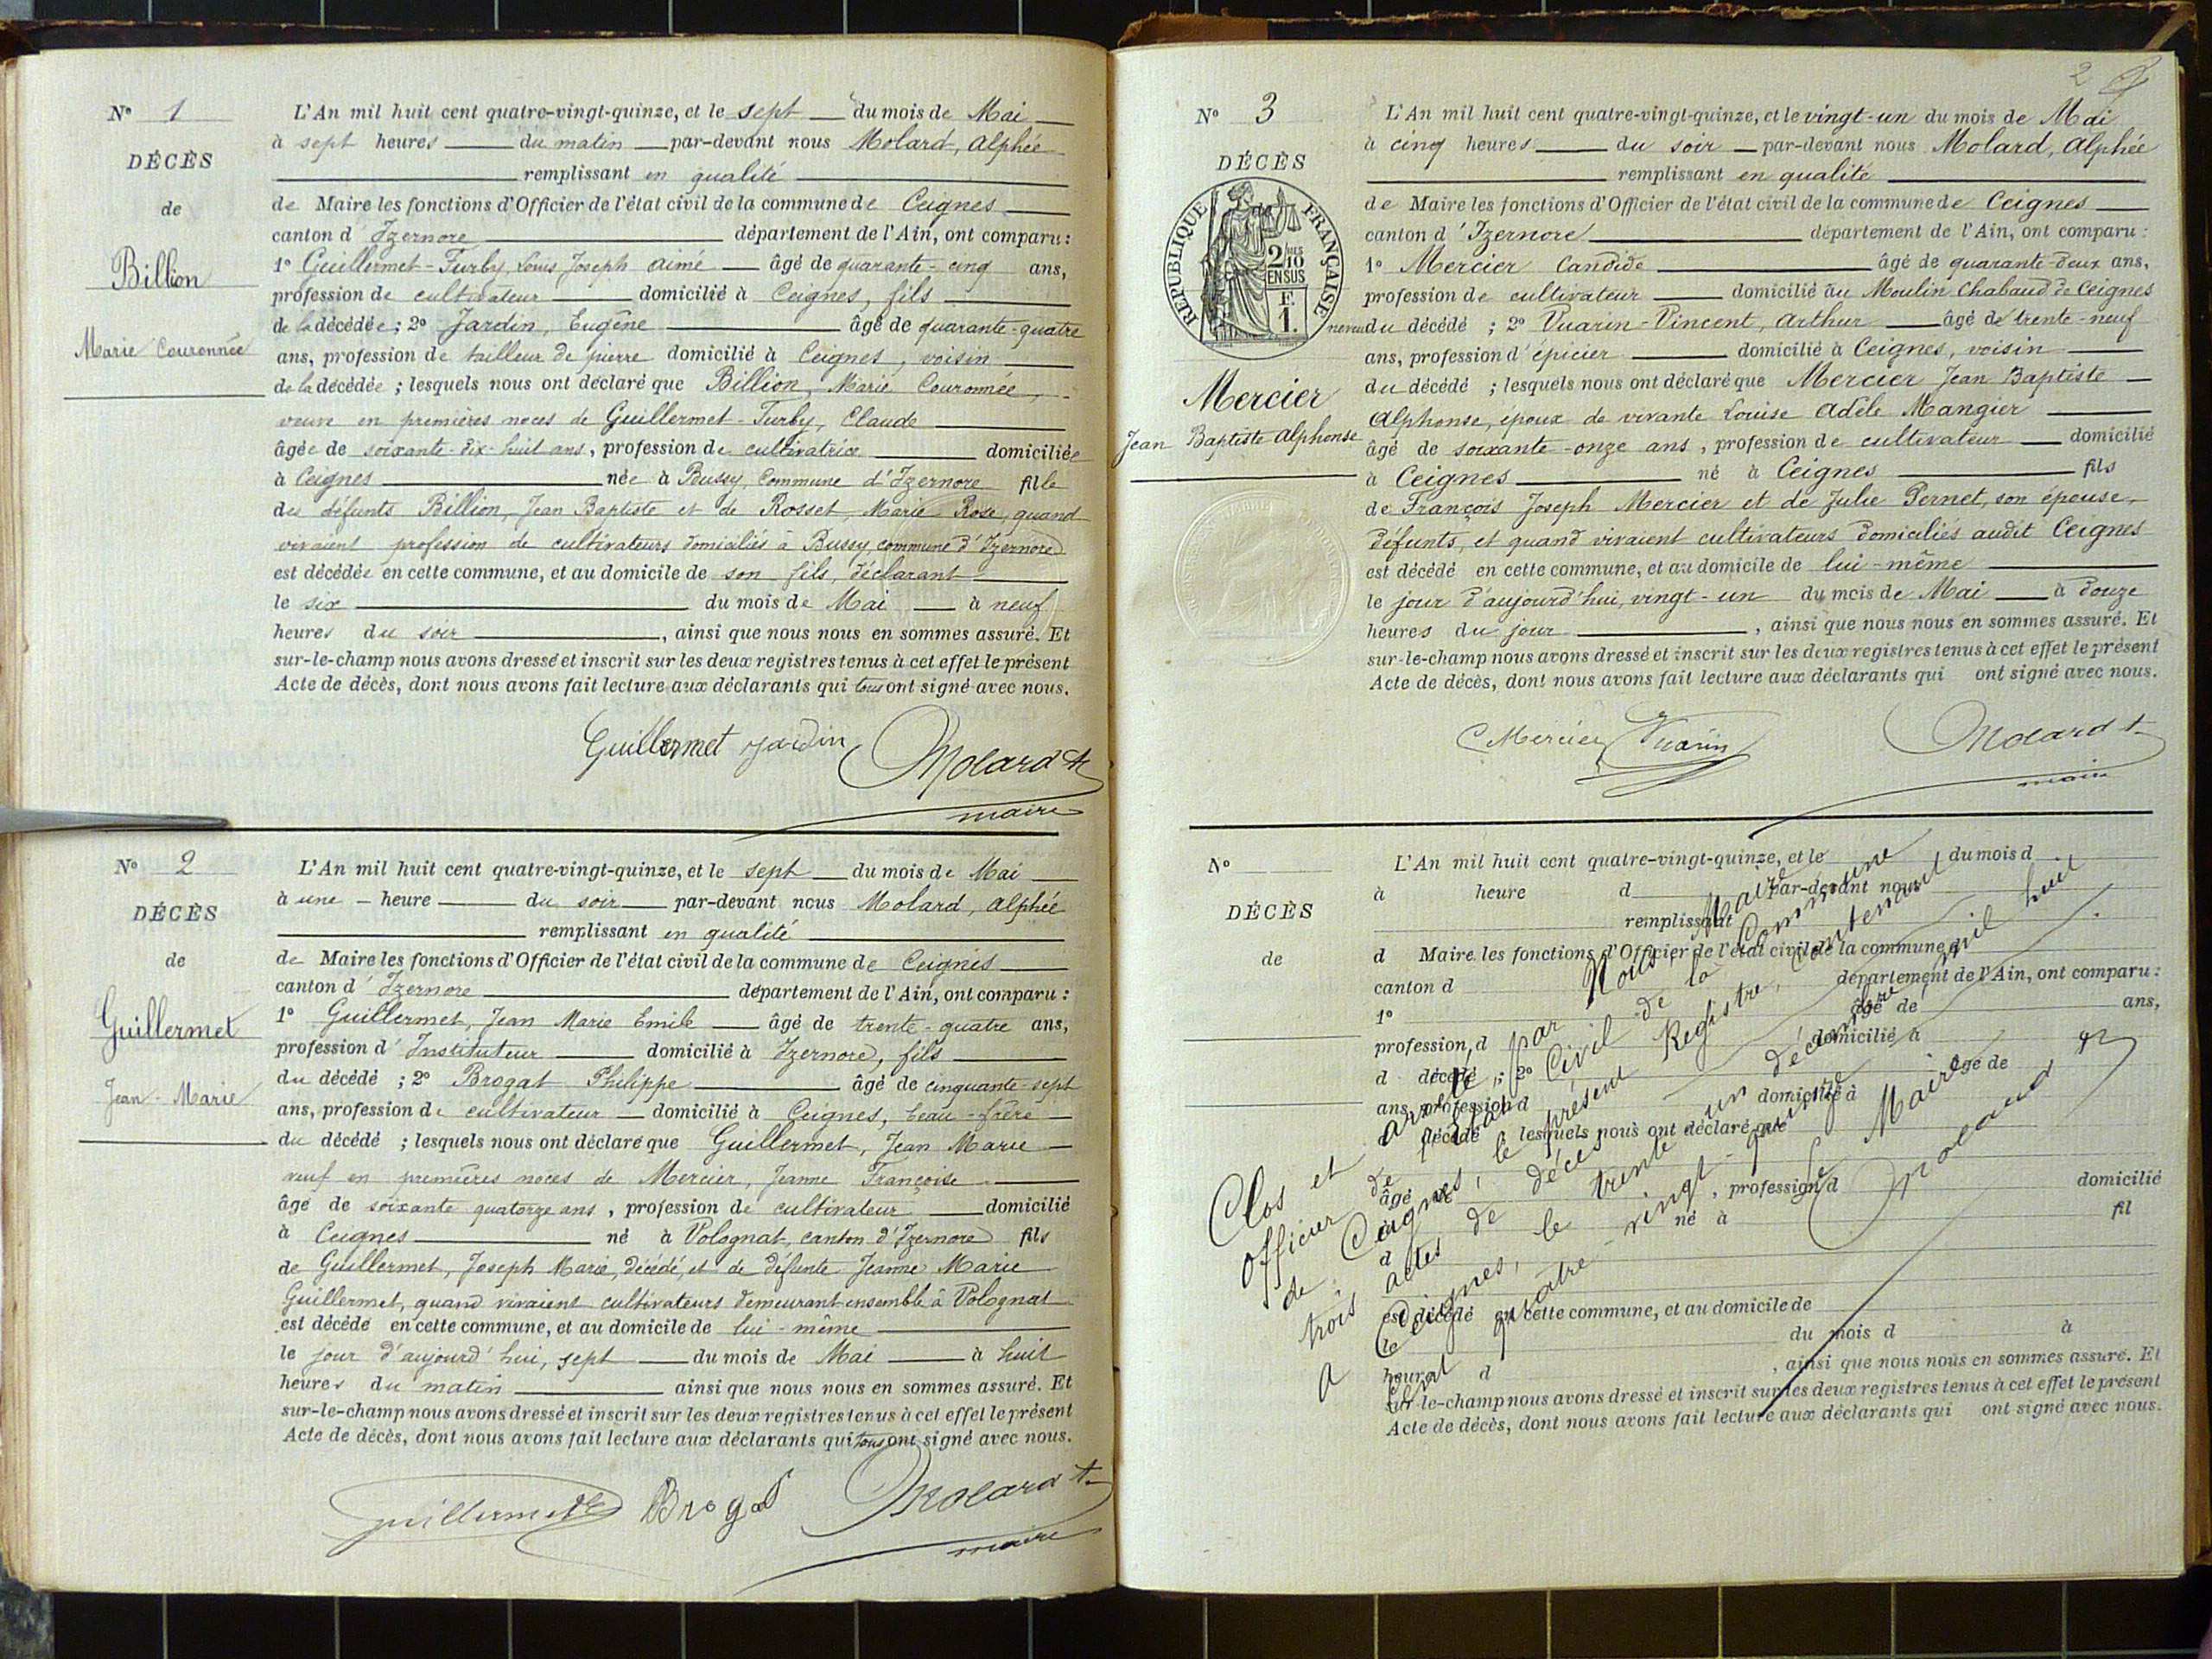 N° 1
DÉCÈS
de
Billion
Marie Couronnée
L'An mil huit cent quatre-vingt-quinze, et le sept du mois de Mai
à sept heures du matin par-devant nous Molard, Alphée
remplissant en qualité
de Maire les fonctions d'Officier de l'état civil de la commune de Ceignes
canton d'Izernore département de l'Ain, ont comparu :
1° Guillermet-Furby, Louis Joseph aimé âgé de quarante-cinq ans,
profession de cultivateur domicilié à Ceignes, fils
de la décédée ; 2° Jardin, Eugène âgé de quarante-quatre
ans, profession de tailleur de pierre domicilié à Ceignes, voisin
de la décédée ; lesquels nous ont déclaré que Billion, Marie Couronnée,
veuve en premières noces de Guillermet-Furby, Claude
âgée de soixante-dix-huit ans, profession de cultivatrice domiciliée
à Ceignes née à Bussy, Commune d'Izernore fille
des défunts Billion, Jean Baptiste et de Rosset, Marie Rose, quand
vivaient profession de cultivateurs domiciliés à Bussy, commune d'Izernore
est décédée en cette commune, et au domicile de son fils, déclarant
le six du mois de Mai à neuf
heures du soir, ainsi que nous nous en sommes assuré. Et
sur-le-champ nous avons dressé et inscrit sur les deux registres tenus à cet effet le présent
Acte de décès, dont nous avons fait lecture aux déclarants qui tous ont signé avec nous.
Guillermet Jardin Molard A
maire
N° 2
DÉCÈS
de
Guillermet
Jean-Marie
L'An mil huit cent quatre-vingt-quinze, et le sept du mois de Mai
à une heure du soir par-devant nous Molard, Alphée
remplissant en qualité
de Maire les fonctions d'Officier de l'état civil de la commune de Ceignes
canton d'Izernore département de l'Ain, ont comparu :
1° Guillermet, Jean Marie Emile âgé de trente-quatre ans,
profession d'Instituteur domicilié à Izernore, fils
du décédé ; 2° Brogat Philippe âgé de cinquante-sept
ans, profession de cultivateur domicilié à Ceignes, beau-frère
du décédé ; lesquels nous ont déclaré que Guillermet, Jean Marie
veuf en premières noces de Mercier, Jeanne Françoise
âgé de soixante quatorze ans, profession de cultivateur domicilié
à Ceignes né à Volognat, canton d'Izernore fils
de Guillermet, Joseph Marie, décédé, et de défunte Jeanne Marie
Guillermet, quand vivaient cultivateurs demeurant ensemble à Volognat
est décédé en cette commune, et au domicile de lui-même
le jour d'aujourd'hui, sept du mois de Mai à huit
heures du matin ainsi que nous nous en sommes assuré. Et
sur-le-champ nous avons dressé et inscrit sur les deux registres tenus à cet effet le présent
Acte de décès, dont nous avons fait lecture aux déclarants qui tous ont signé avec nous.
Guillermet Brogat Molard A
maire
2
N° 3
DÉCÈS
RÉPUBLIQUE FRANÇAISE
2/10 EN SUS
F. 1.
Mercier
Jean Baptiste Alphonse
L'An mil huit cent quatre-vingt-quinze, et le vingt-un du mois de Mai
à cinq heures du soir par-devant nous Molard, Alphée
remplissant en qualité
de Maire les fonctions d'Officier de l'état civil de la commune de Ceignes
canton d'Izernore département de l'Ain, ont comparu :
1° Mercier Candide âgé de quarante-deux ans,
profession de cultivateur domicilié au Moulin Chabaud de Ceignes
neveu du décédé ; 2° Vuarin-Vincent, Arthur âgé de trente-neuf
ans, profession d'épicier domicilié à Ceignes, voisin
du décédé ; lesquels nous ont déclaré que Mercier Jean Baptiste
Alphonse, époux de vivante Louise Adèle Mangier
âgé de soixante-onze ans, profession de cultivateur domicilié
à Ceignes né à Ceignes fils
de François Joseph Mercier et de Julie Pernet, son épouse,
défunts, et quand vivaient cultivateurs domiciliés audit Ceignes
est décédé en cette commune, et au domicile de lui-même
le jour d'aujourd'hui, vingt-un du mois de Mai à douze
heures du jour, ainsi que nous nous en sommes assuré. Et
sur-le-champ nous avons dressé et inscrit sur les deux registres tenus à cet effet le présent
Acte de décès, dont nous avons fait lecture aux déclarants qui ont signé avec nous.
C Mercier Vuarin Molard A
maire
N°
DÉCÈS
de
L'An mil huit cent quatre-vingt-quinze, et le du mois d
à heure d par-devant nous
remplissant
d Maire les fonctions d'Officier de l'état civil de la commune d
canton d département de l'Ain, ont comparu :
1° âgé de ans,
profession d domicilié à
d décédé ; 2° âgé de
ans, profession d domicilié à
d décédé lesquels nous ont déclaré que
âgé de, profession d domicilié
à né à fil
d
est décédé en cette commune, et au domicile de
le du mois d à
heure d, ainsi que nous nous en sommes assuré. Et
sur-le-champ nous avons dressé et inscrit sur les deux registres tenus à cet effet le présent
Acte de décès, dont nous avons fait lecture aux déclarants qui ont signé avec nous.
Clos et arrêté par Nous, Maire
officier de l'état Civil de la Commune
de Ceignes, le présent Registre, contenant
trois actes de décès
A Ceignes, le trente un décembre mil huit
cent quatre-vingt-quinze
Le Maire
Molard A